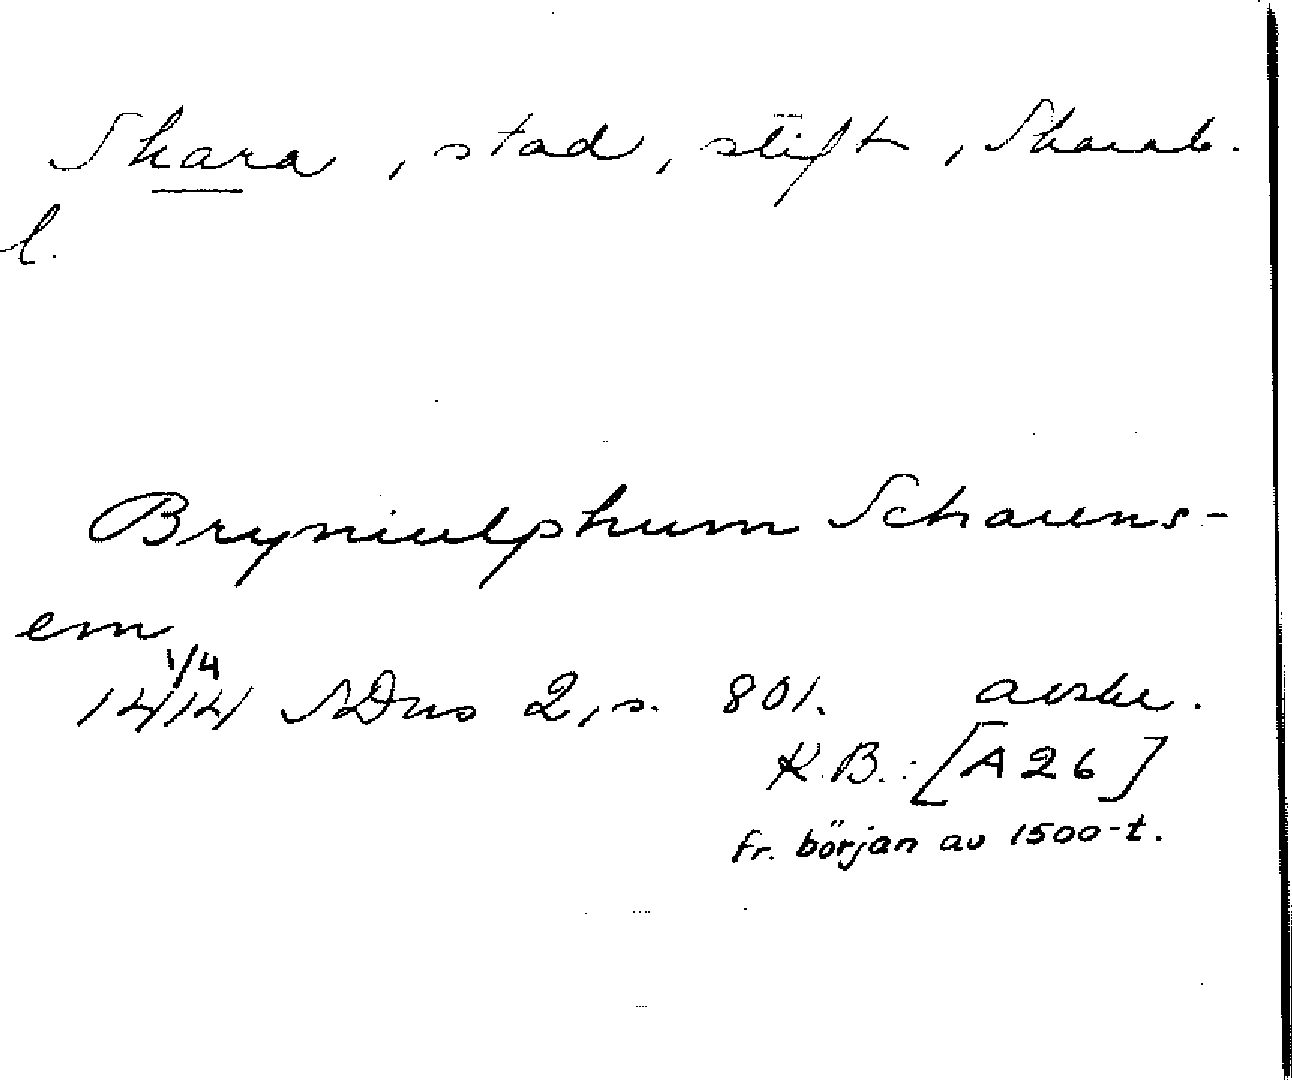 Skara, stad, stift, Skarab.
l.
Bryniulphum Scharens-
em
1/4
1414 SDns 2, s. 801. avskr.
K.B.: [A 26]
fr. början av 1500-t.